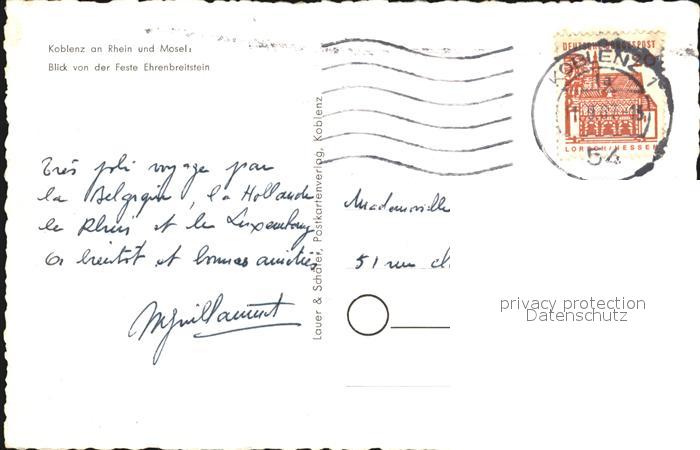 Koblenz an Rhein und Mosel:
Blick von der Feste Ehrenbreitstein
DEUTSCHE BUNDESPOST
KOBLENZ
LORSCH/HESSEN
54
Très joli voyage par
la Belgique, la Hollande
le Rhin et le Luxembourg
à bientôt et bonnes amitiés
MGuillaumet
Lauer & Schäfer, Postkartenverlag, Koblenz
Mademoiselle
51 rue
privacy protection
Datenschutz